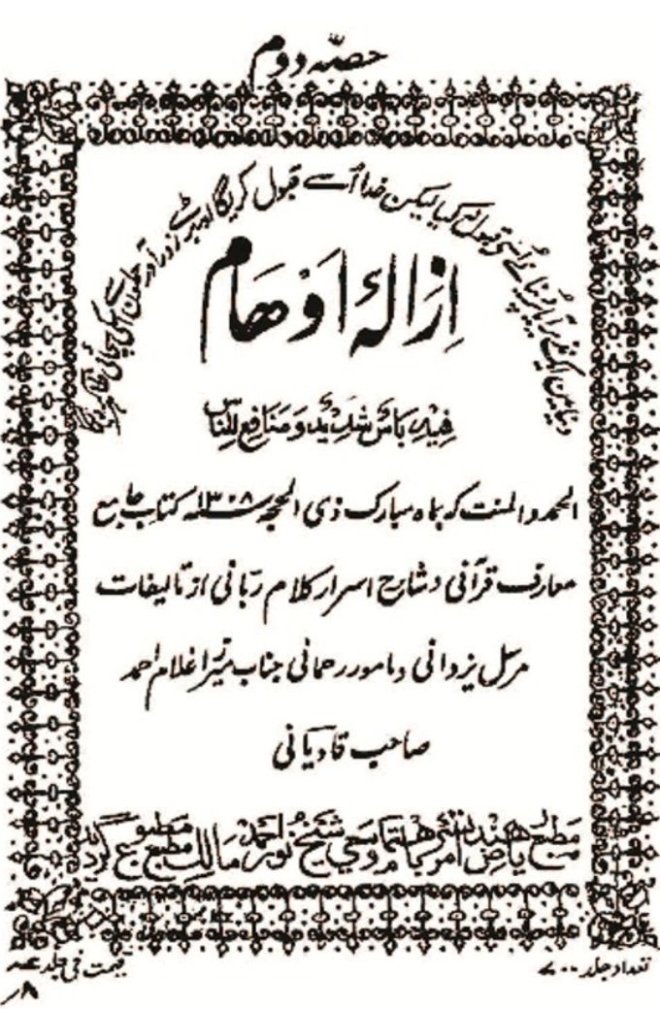 حصّہ دوم
دنیا میں ایک نذیر آیا پر دنیا نے اُسے قبول نہ کیا لیکن خدا اُسے قبول کریگا اور بڑے زور آور حملوں سے اسکی سچائی ظاہر کردیگا
اِزَالۂ اَوْهَام
فِيْهِ بَأْسٌ شَدِيْدٌ وَمَنَافِعُ لِلنَّاسِ
الحمد والمنت کہ بماہ مبارک ذی الحجہ ۱۳۰۸ کتاب جامع
معارف قرآنی و شارح اسرار کلام ربّانی از تالیفات
مرسل یزدانی و مامور رحمانی جناب میرزا غلام احمد
صاحب قادیانی
مطبع ریاض ہند امرتسر باہتمام شیخ نور احمد مالک مطبع مطبوع گردید
تعداد جلد ۷۰۰
قیمت فی جلد